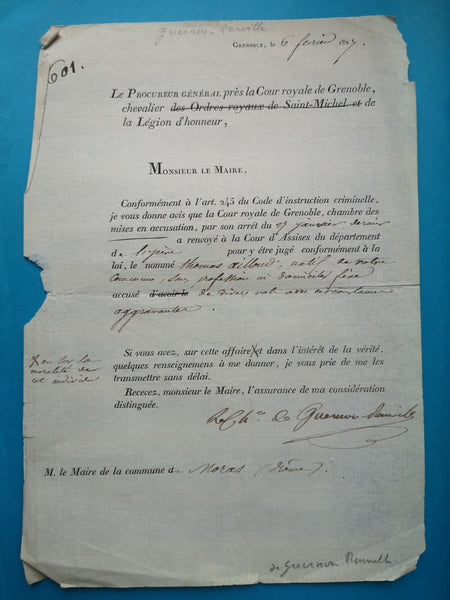 Guernon-Ranville
GRENOBLE, le 6 février 1827.
601.
LE PROCUREUR GÉNÉRAL près la Cour royale de Grenoble,
chevalier des Ordres royaux de Saint-Michel et de
la Légion d'honneur,
MONSIEUR LE MAIRE,
Conformément à l'art. 245 du Code d'instruction criminelle,
je vous donne avis que la Cour royale de Grenoble, chambre des
mises en accusation, par son arrêt du 27 janvier dernier
a renvoyé à la Cour d'Assises du département
de l'isère pour y être jugé conformément à la
loi, le nommé thomas ailloud, natif de votre
commune, sans profession ni domicile fixe
accusé d'avoir de divers vols avec circonstances
aggravantes.
Si vous avez, sur cette affaire X et dans l'intérêt de la vérité,
X ou sur la
moralité de
cet individu
quelques renseignemens à me donner, je vous prie de me les
transmettre sans délai.
Recevez, monsieur le Maire, l'assurance de ma considération
distinguée.
le Ch.er de Guernon Ranville
M. le Maire de la commune de Moras (drôme).
de Guernon Ranville